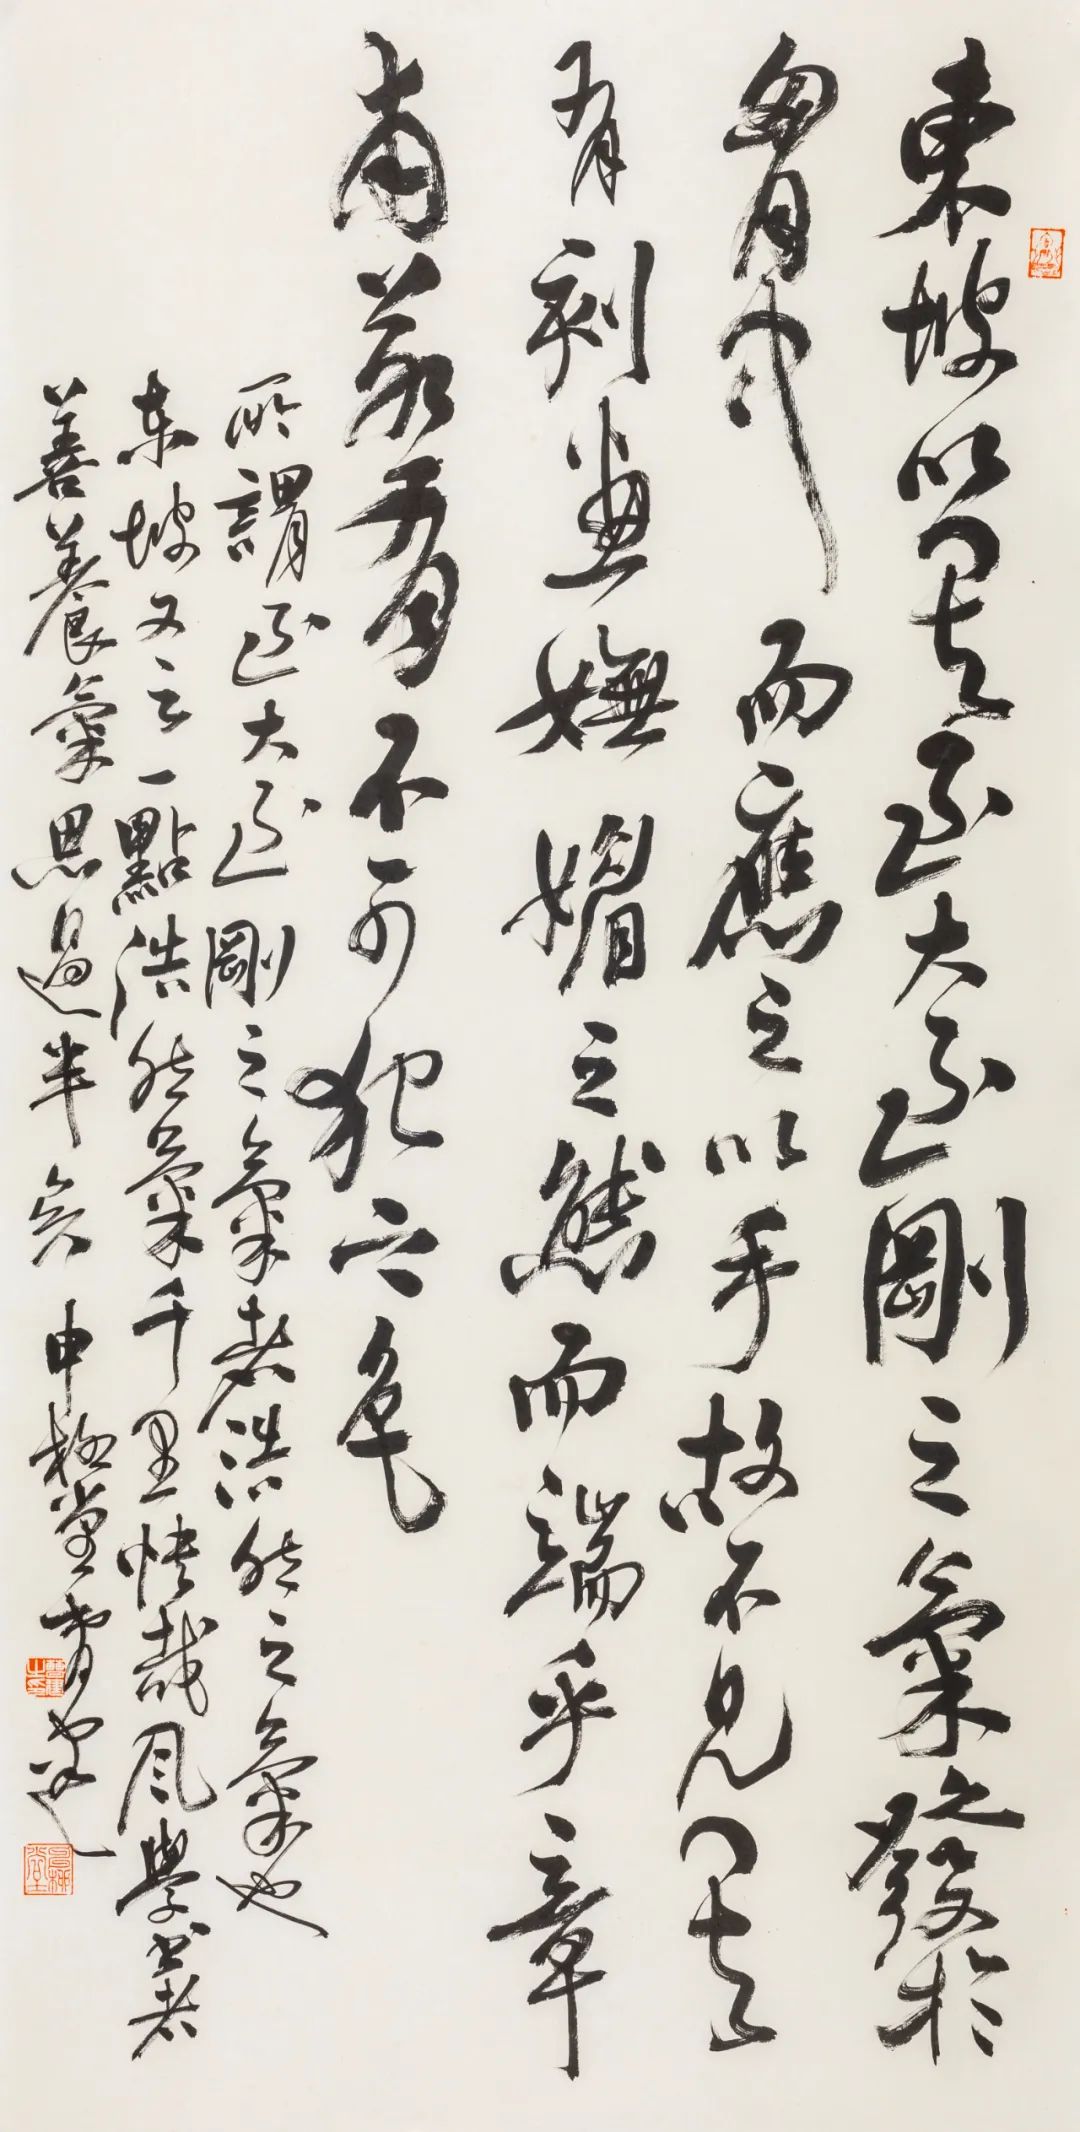 東坡以其至大至剛之氣發於
胷中而應之以手故不見其
有刻畫嫵媚之態而端乎章
甫若有不可犯之色
所謂至大至剛之氣者浩然之氣也
東坡又云一點浩然氣千里快哉風學書者
善養氣思過半矣申堂曹建